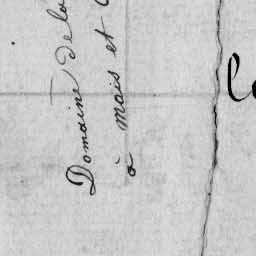 Domaine de la
à mais et